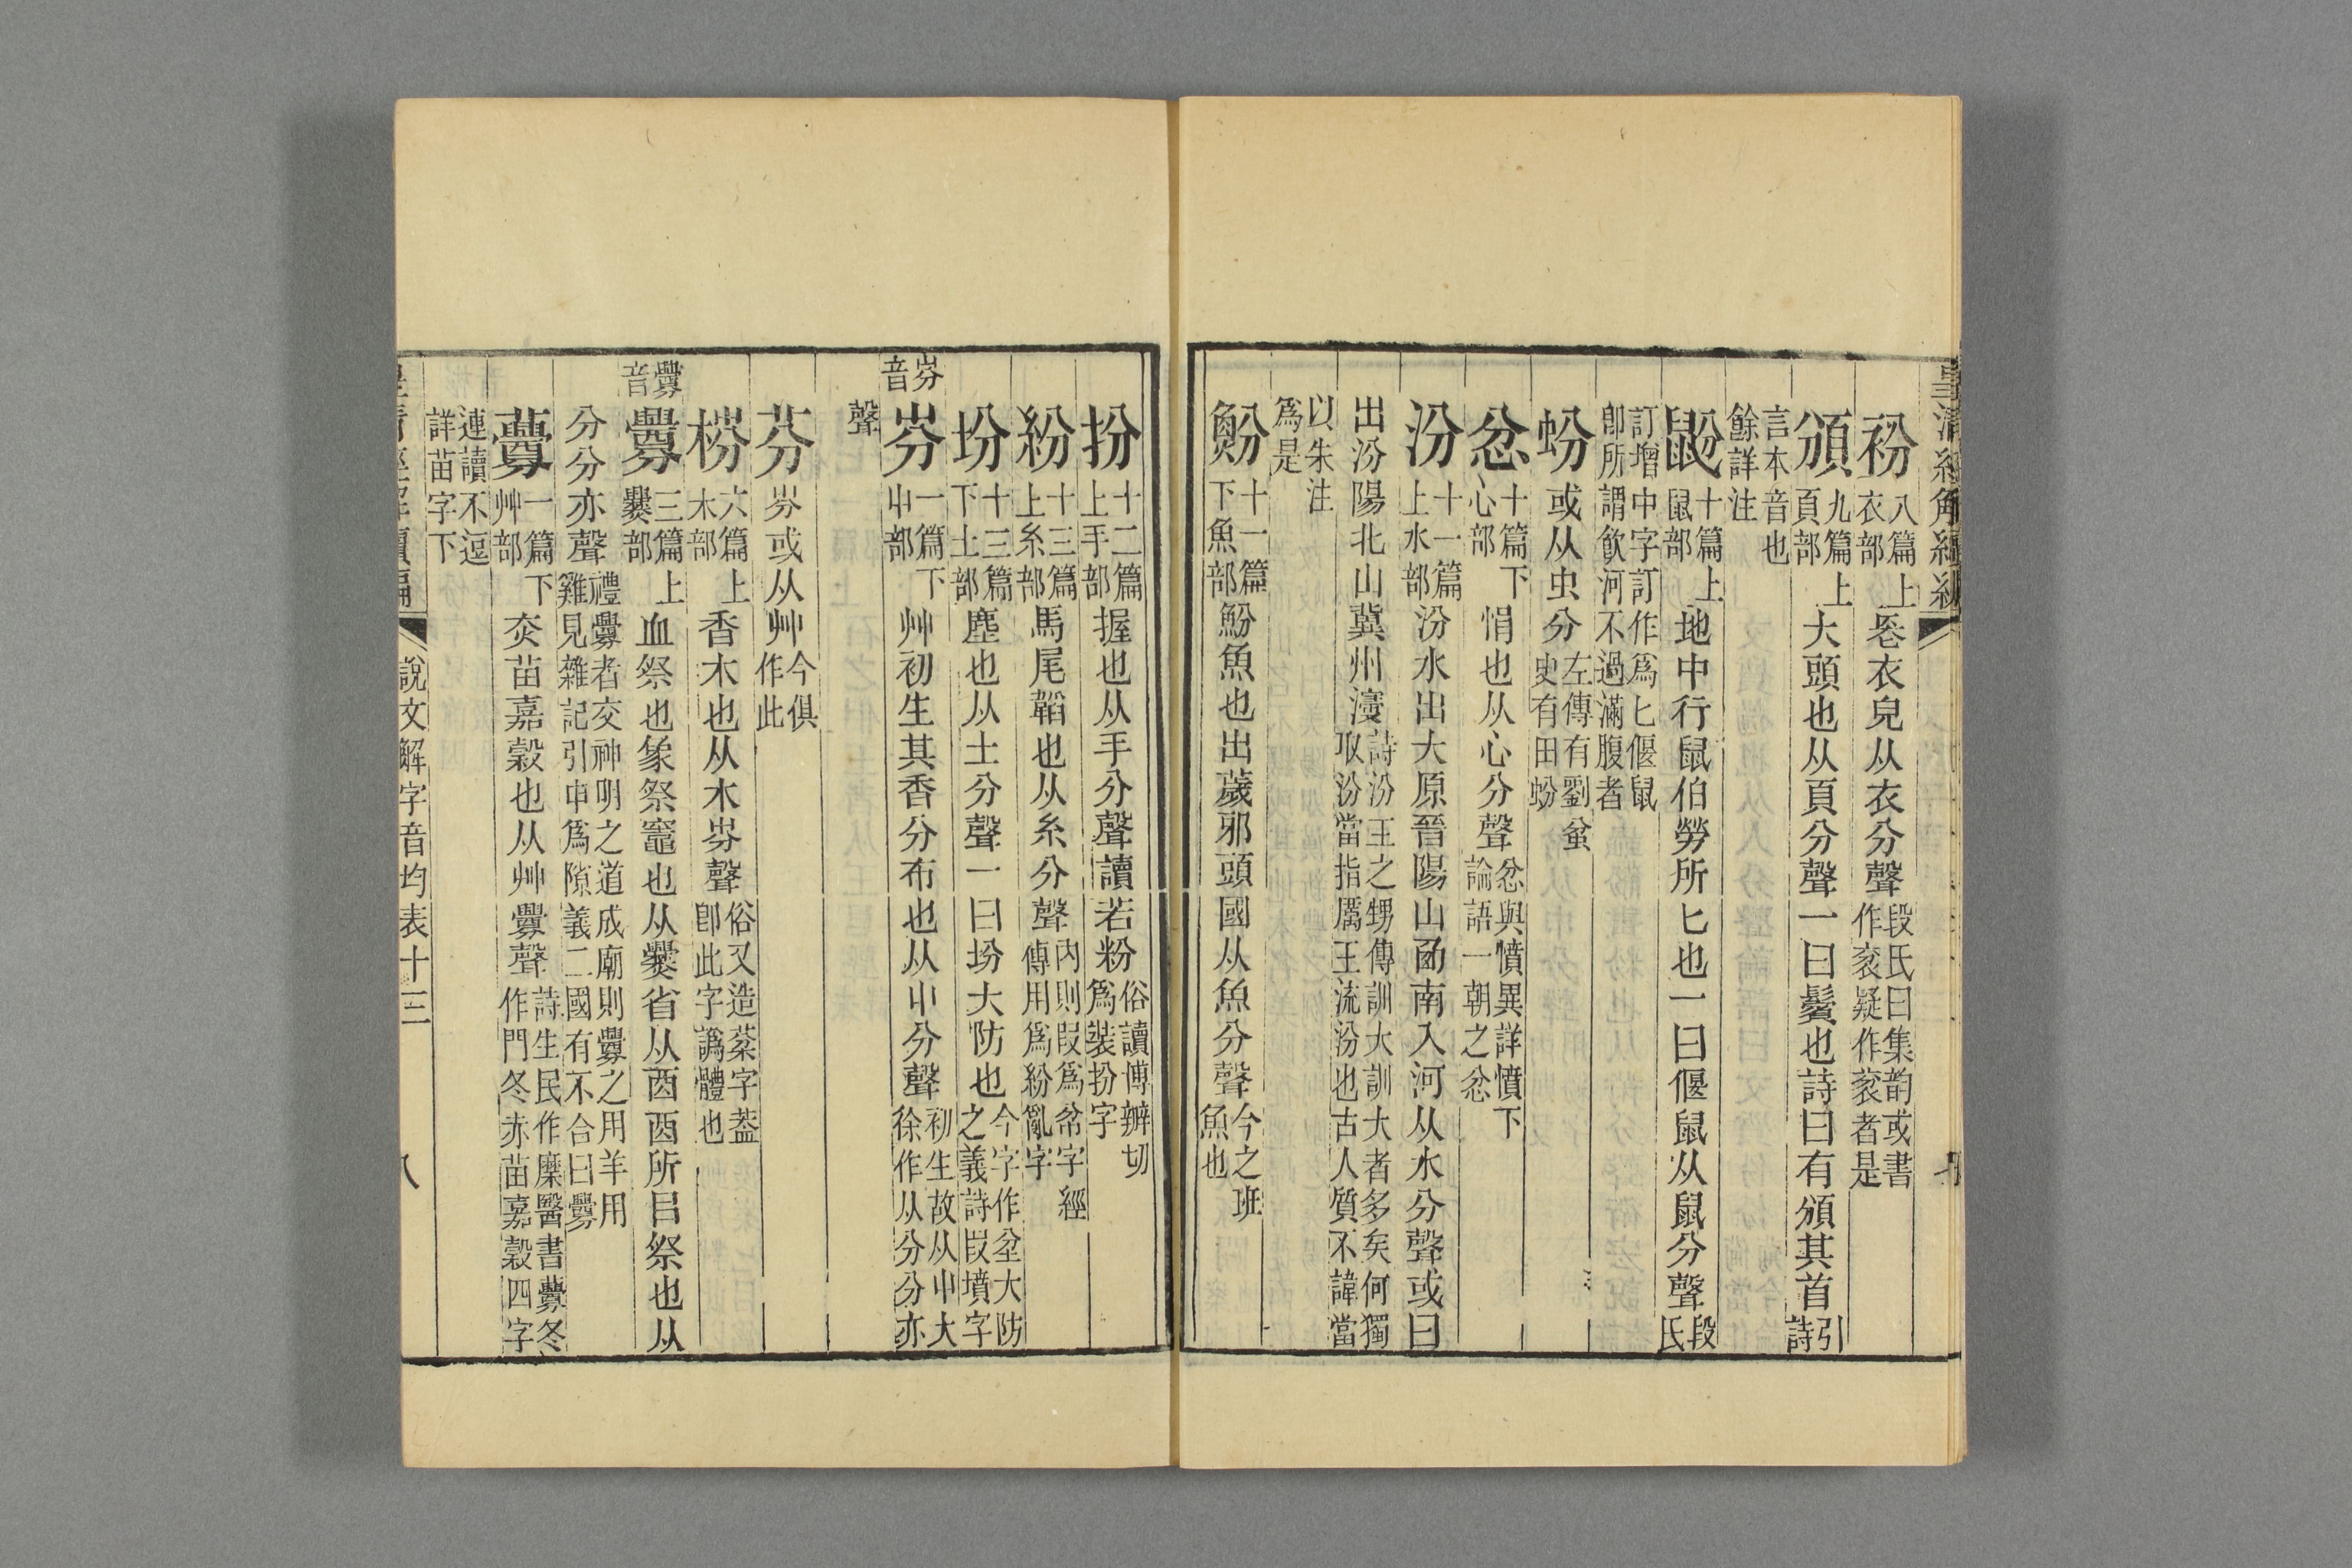 衯八篇上衣部長衣皃从衣分聲段氏曰集韵或書作衮疑作衮者是
頒九篇上頁部大頭也从頁分聲一曰鬢也詩曰有頒其首引詩
言本音也餘詳注
鼢十篇上鼠部地中行鼠伯勞所匕也一曰偃鼠从鼠分聲段氏
訂增中字訂作爲匕偃鼠卽所謂飮河不過滿腹者
蚡或从虫分左傳有劉蚠史有田蚡
忿十篇下心部悁也从心分聲忿與憤異詳憤下論語一朝之忿
汾十一篇上水部汾水出大原晉陽山西南入河从水分聲或曰
出汾陽北山冀州濅詩汾王之甥傳訓大訓大者多矣何獨取汾當指厲王流汾也古人質不諱當
以朱注爲是
魵十一篇下魚部魵魚也出薉邪頭國从魚分聲今之班魚也
扮十二篇上手部握也从手分聲讀若粉俗讀博辦切爲裝扮字
紛十三篇上糸部馬尾韜也从糸分聲內則叚爲帉字經傳用爲紛亂字
坋十三篇下土部塵也从土分聲一曰坋大防也今字作坌大防之義詩叚墳字
岕音
岕一篇下屮部艸初生其香分布也从屮分聲初生故从屮大徐作从分分亦
聲
芬芬或从艸今俱作此
梤六篇上木部香木也从木芬聲俗又造棻字葢卽此字譌體也
釁音
釁三篇上爨部血祭也象祭竈也从爨省从酉酉所㠯祭也从
分分亦聲禮釁者交神明之道成廟則釁之用羊用雞見雜記引申爲隙義二國有不合曰釁
虋一篇下艸部赤苗嘉穀也从艸釁聲詩生民作穈醫書虋冬作門冬赤苗嘉穀四字
連讀不逗詳苗字下
說文解字音均表十三
八